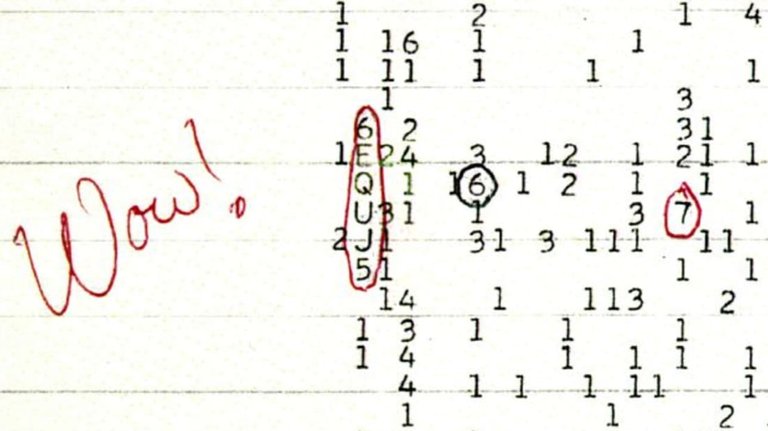 1 2 1 4
1 16 1 1
1 11 1 1 1
1 3
6 2 31
1 E 24 3 12 1 21 1
Q 1 16 1 2 1 1
Wow!
U 31 1 3 7 1
2 J 1 31 3 111 11
5 1 1 1
14 1 113 2
1 3 1 1 1
1 4 1 1 1 1
4 1 1 1 11 1
1 1 2